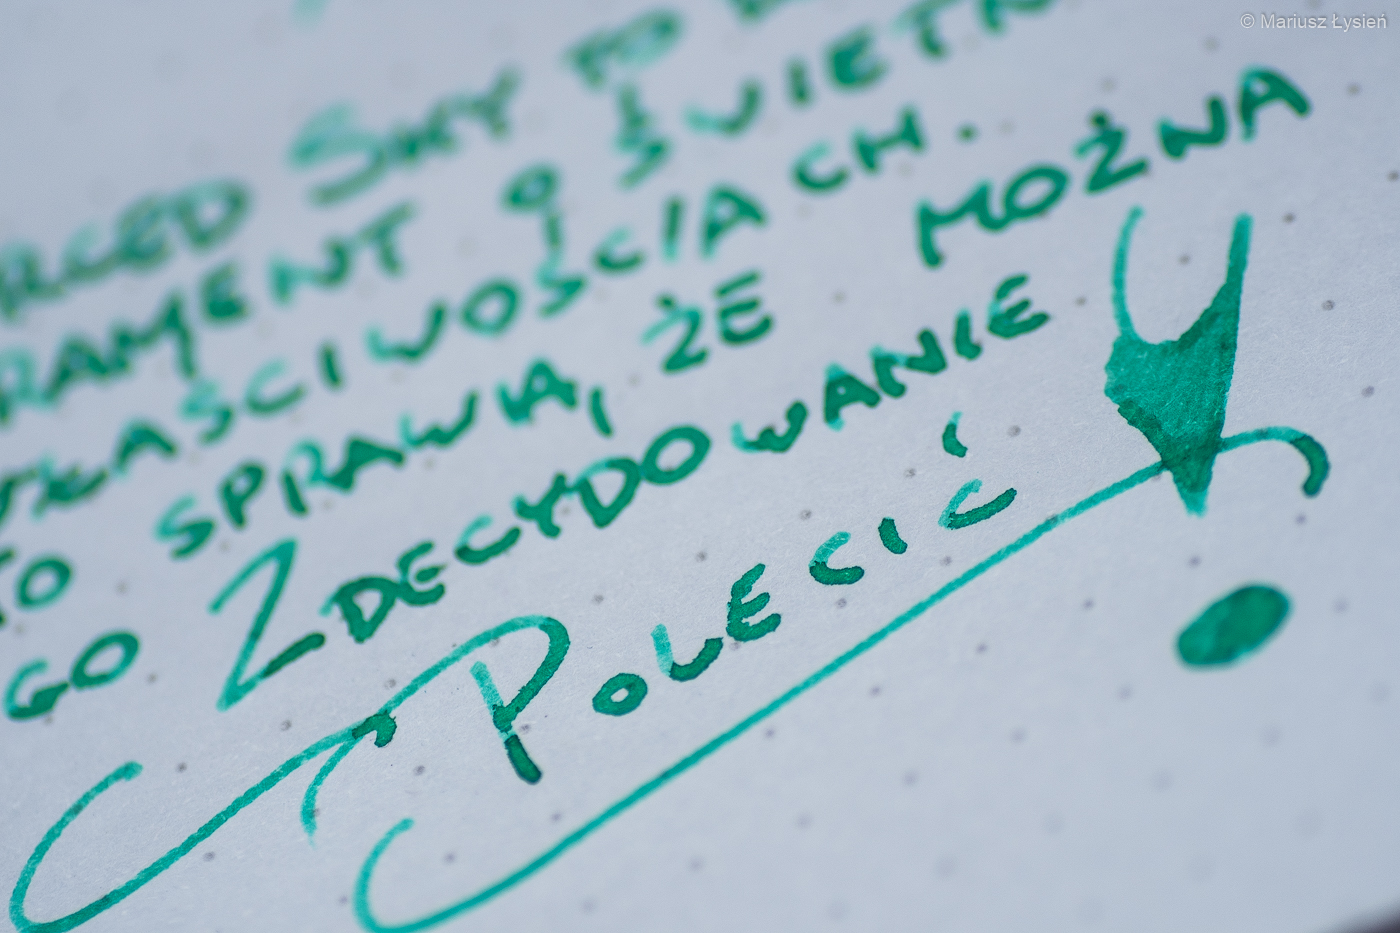 © Mariusz Łysień
RCED SHY TO
RAMENT O ŚWIETN
WŁAŚCIWOŚCIACH.
TO SPRAWIA, ŻE MOŻNA
GO ZDECYDOWANIE
POLECIĆ!